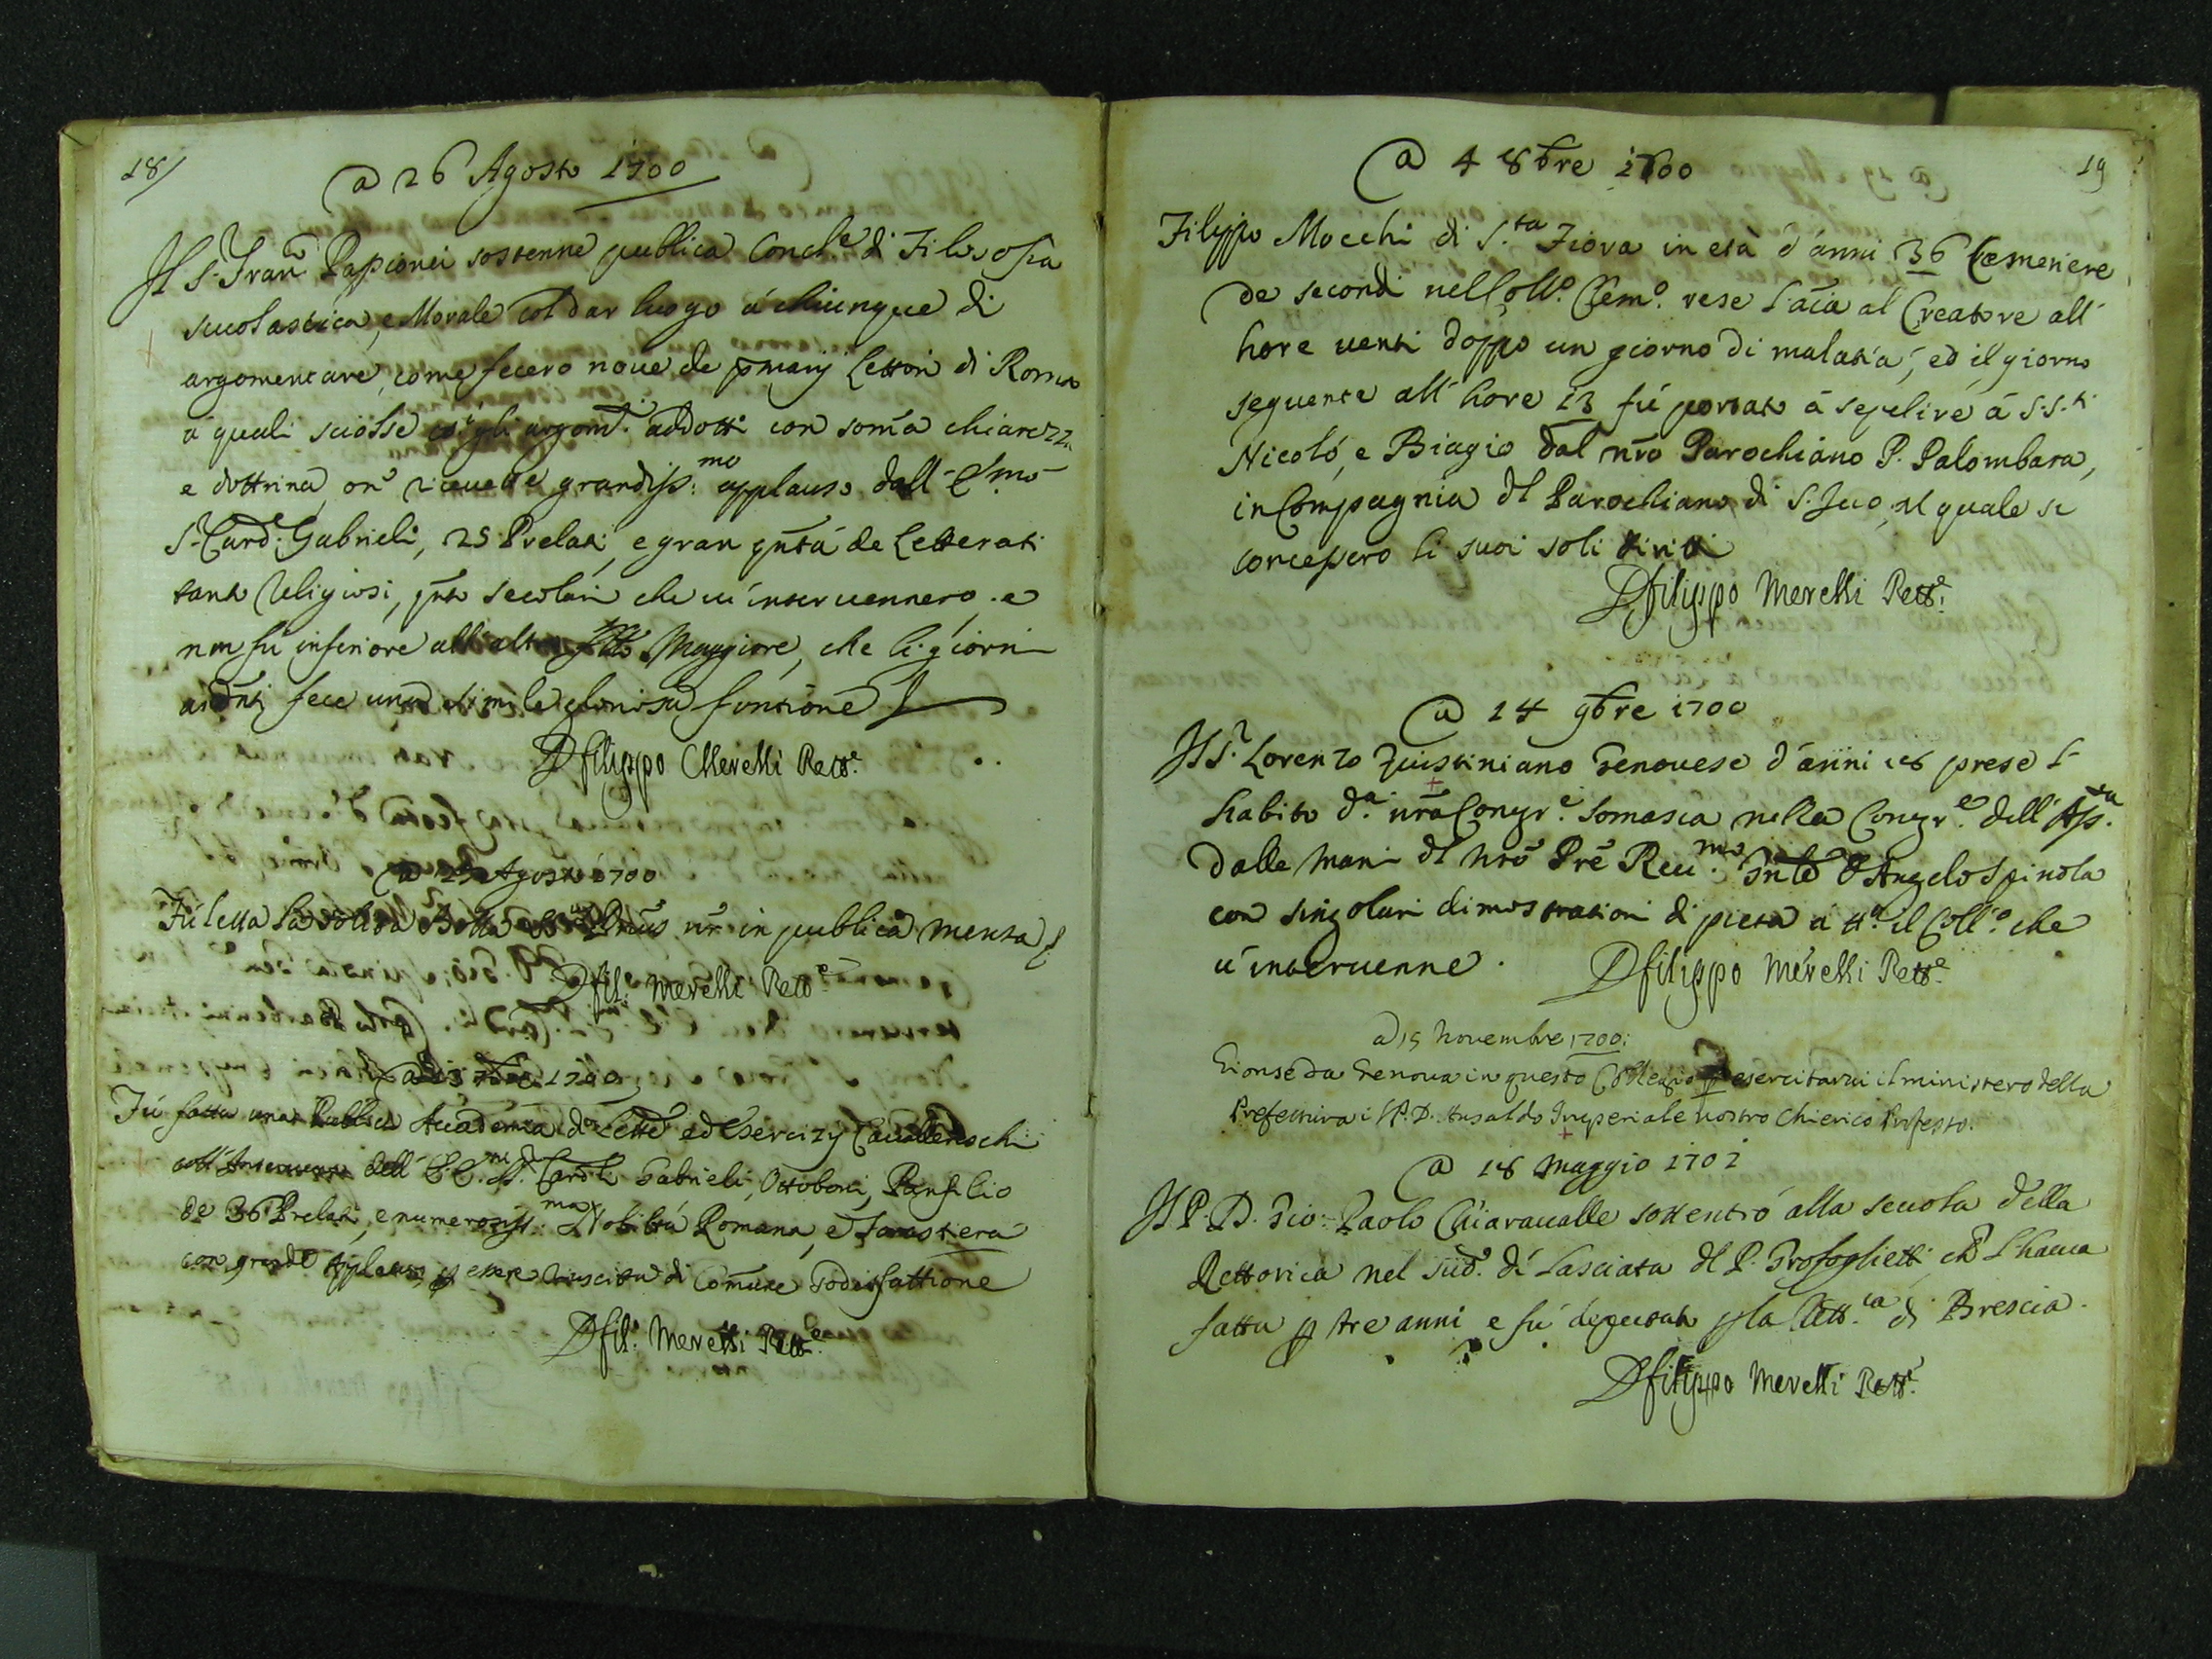 18/
a 26 Agosto 1700
Il S.r Fran.co Papionei sostenne publica Concl.e di Filosofia
scuolastica, e Morale col dar luogo á chiunque di
argomentare, come fecero noue de pmarij Lettori di Roma
á quali sciolse gli argom.ti addotti con som̄a chiarezza
e dottrina, on riceuette grandiss:mo applauso dall' E.mo
S.r Card. Gabrieli, 25 Prelati, e gran qn̄tá de Letterati
tanto Religiosi, qn̄to secolari che ui interuennero. e
non fú inferiore all altro Maggiore, che li giorni
auanti fece una simile gloriosa funtione
D filippo Merelli Rett.e
a 29 Agosto 1700
Fú letta la solita Bolla nr̄ in publica mensa
D fil: Merelli Rett.e
a 7bre 1700
Fú fatta una Publica Accademia di Lettere ed Esercizij Cauallereschi
coll' Interuento dell' E.E.mi SS. Card.li Gabrieli, Ottoboni, Panfilio
de 36 Prelati, e numerosiss:ma Nobiltá Romana, e forastiera
con grande applauso, p essere riuscita di Comune sodisfattione
D fil: Merelli Rett.e
19
a 4 8bre 1700
Filippo Mocchi di S.ta Fiora in etá d'anni 36 Cameriere
de secondi nel Coll.o Clem.o rese l'ai̅a al Creatore all'
hore uenti doppo un giorno di malatia, ed il giorno
seguente all' hore 23 fú portato á sepelire á S.S.ti
Nicoló, e Biagio dal nr̄o Parochiano P. Palombara,
in Compagnia dl Parochiano di S. Iuo, al quale si
concessero li suoi soli diritti
D filippo Merelli Rett.e
a 14 9bre 1700
Il S.r Lorenzo Giustiniano Genouese d'anni 18 prese l'
habito d.a nr̄a Congr.e Somasca nella Congr.e dell' Ass.ta
dalle mani dl nr̄o Pre Reu.mo Gnl̄e D Angelo Spinola
con singolari dimostrationi di pieta a tt.o il Coll.o che
u'interuenne. D filippo Merelli Rett.e
a 15 Nouembre 1700:
Gionse da Genoua in questo Collegio p esercitarui il ministero della
Prefettura il P. D. Ansaldo Imperiale nostro Chierico Professo.
a 18 Maggio 1701
Il P. D. Gio: Paolo Chiaraualle sottentró alla scuola della
Rettorica nel sud.o di lasciata dl P. Grossoglietti, ch l'haueua
fatta p tre anni e fú deputato p la Lett.ra di Brescia.
D filippo Merelli Rett.e